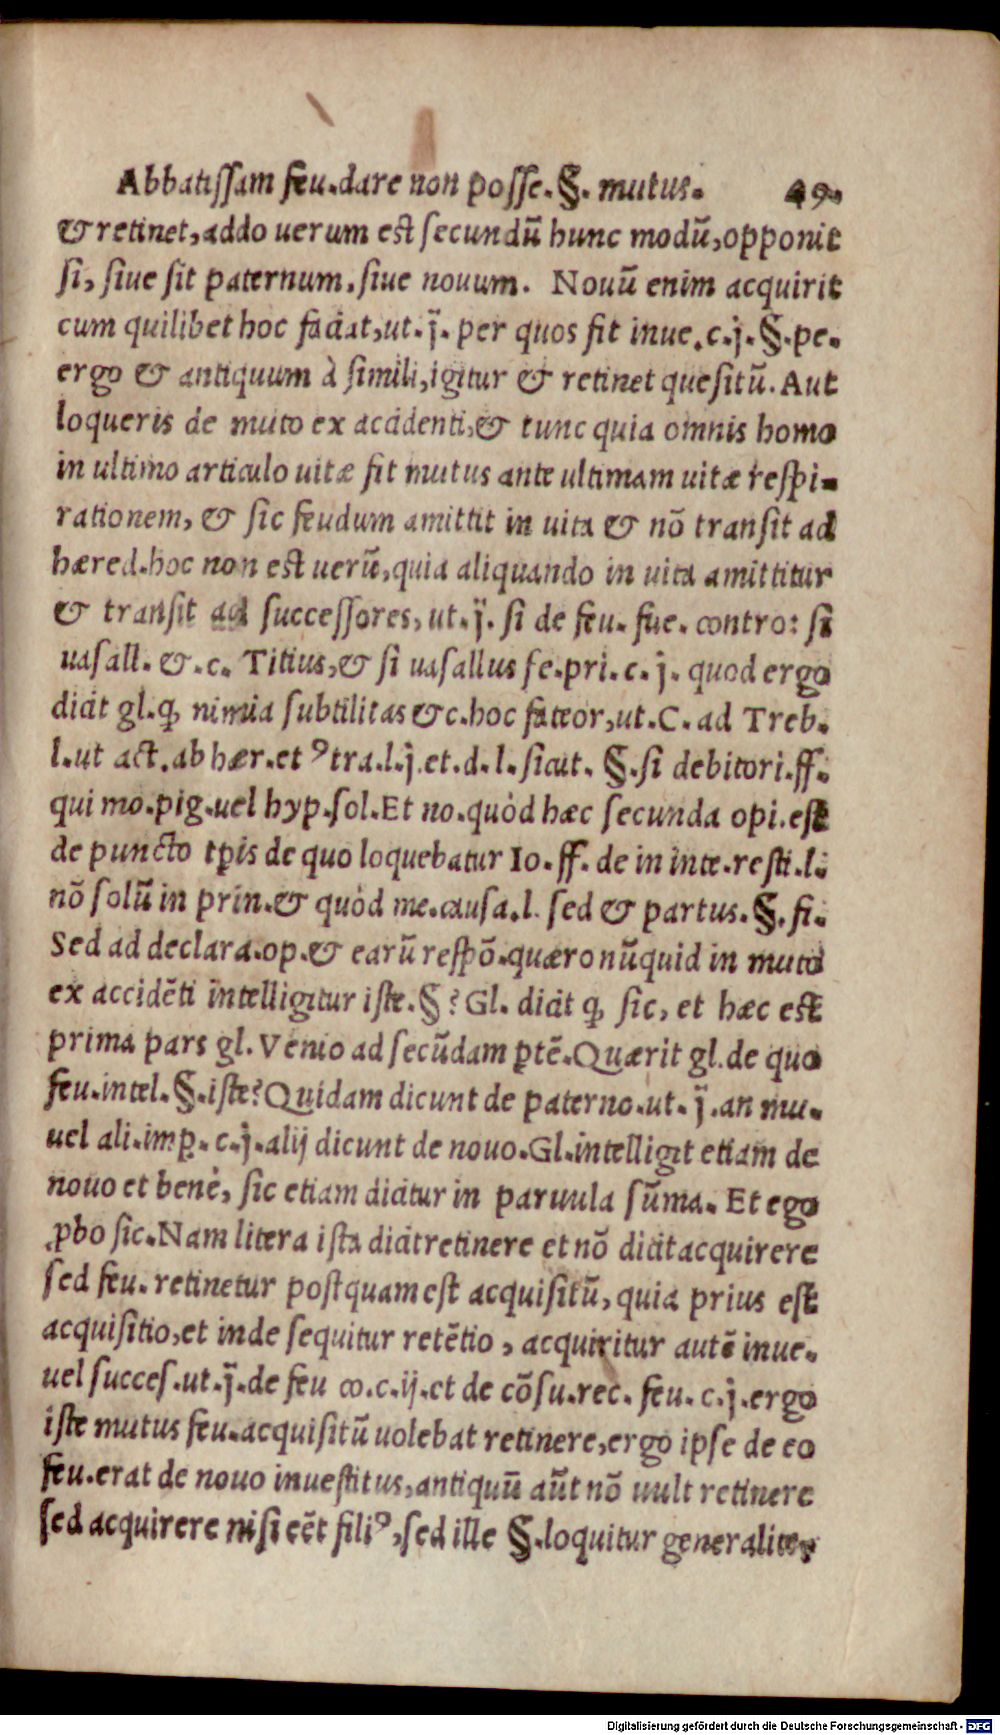 Abbatissam feu.dare non posse.§. mutus. 49.
& retinet, addo uerum est secundũ hunc modũ, opponit
si, siue sit paternum, siue nouum. Nouũ enim acquirit
cum quilibet hoc faciat, ut. j̈. per quos fit inue. c. j. §. pe.
ergo & antiquum à simili, igitur & retinet quesitũ. Aut
loqueris de muto ex accidenti, & tunc quia omnis homo
in ultimo articulo uitæ fit mutus ante ultimam uitæ respi-
rationem, & sic feudum amittit in uita & nõ transit ad
hæred. hoc non est uerũ, quia aliquando in uita amittitur
& transit ad successores, ut. j̈. si de feu. fue. contro: si
uasall. &. c. Titius, & si uasallus fe. pri. c. j. quod ergo
dicit gl. ꝙ nimia subtilitas &c. hoc fateor, ut. C. ad Treb.
l. ut act. ab hær. et ꝯtra. l. j. et. d. l. sicut. §. si debitori. ff.
qui mo. pig. uel hyp. sol. Et no. quòd hæc secunda opi. est
de puncto tꝑis de quo loquebatur Io. ff. de in inte. resti. l.
nõ solũ in prin. & quòd me. causa. l. sed & partus. §. fi.
Sed ad declara. op. & earũ respõ. quæro nũquid in muto
ex accidẽti intelligitur iste. §? Gl. dicit ꝙ sic, et hæc est
prima pars gl. Venio ad secũdam ꝑtẽ. Quærit gl. de quo
feu. intel. §. iste? Quidam dicunt de paterno. ut. j̈. an mu.
uel ali. imꝑ. c. j. alij dicunt de nouo. Gl. intelligit etiam de
nouo et benè, sic etiam dicitur in paruula sũma. Et ego
ꝓbo sic. Nam litera ista dicit retinere et nõ dicit acquirere
sed feu. retinetur postquam est acquisitũ, quia prius est
acquisitio, et inde sequitur retẽtio, acquiritur autẽ inue.
uel succes. ut. j̈. de feu co. c. ij. et de cõsu. rec. feu. c. j. ergo
iste mutus feu. acquisitũ uolebat retinere, ergo ipse de eo
feu. erat de nouo inuestitus, antiquũ aũt nõ uult retinere
sed acquirere nisi eẽt filiꝰ, sed ille §. loquitur generaliter
Digitalisierung gefördert durch die Deutsche Forschungsgemeinschaft - DFG